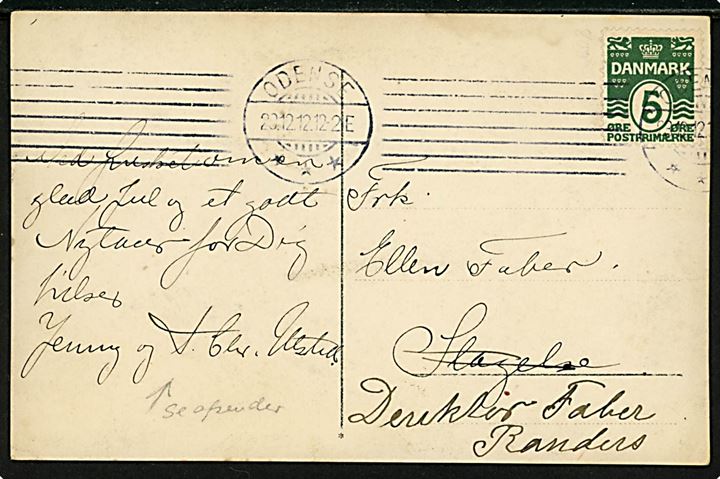 ODENSE
23.12.12.12-2E
DANMARK
5
ØRE ØRE
POSTFRIMÆRKE
Med Ønsket om en
glad Jul og et godt
Nytaar for Dig
hilser
Jenny og A. Chr. Ulsted.
se afsender
Frk.
Ellen Faber.
Slagelse
Derektør Faber
Randers